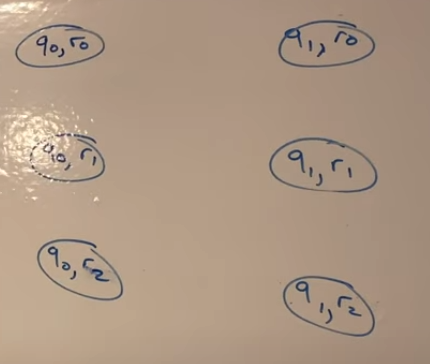 q0, r0
q1, r0
q0, r1
q1, r1
q0, r2
q1, r2